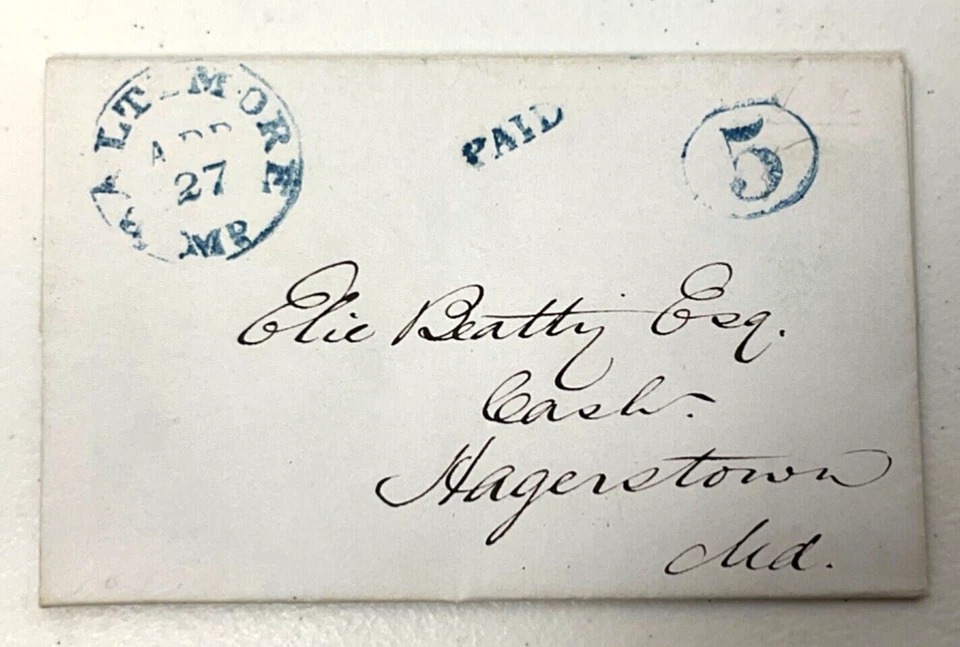 BALTIMORE
APR
27
MD
PAID
5
Elie Beatty Esq.
Cashr.
Hagerstown
Md.